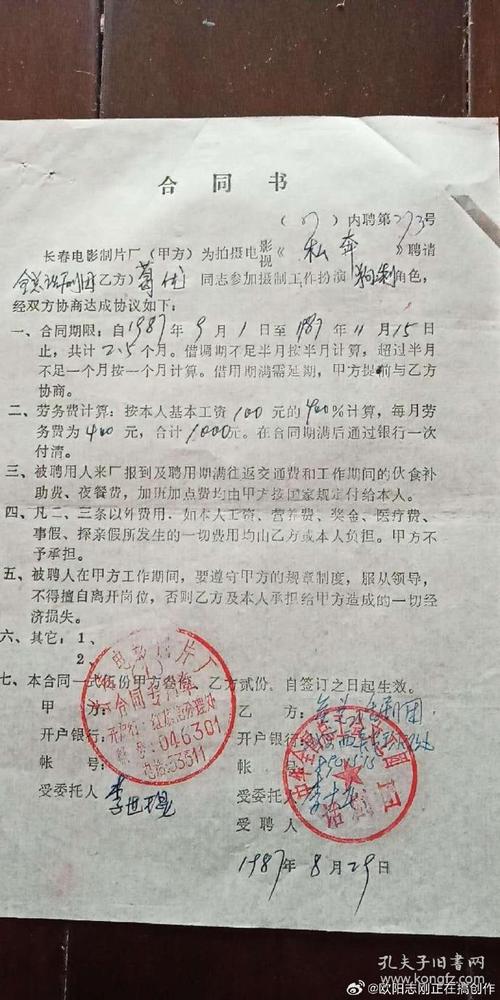 合同书
(87)内聘第273号
长春电影制片厂(甲方)为拍摄电影视《私奔》聘请
全总话剧团(乙方)葛优同志参加摄制工作扮演角色,
经双方协商达成协议如下:
一、合同期限:自1987年9月1日至1987年11月15日
止,共计2.5个月。借调期不足半月按半月计算,超过半月
不足一个月按一个月计算。借用期满需延期,甲方提前与乙方
协商。
二、劳务费计算:按本人基本工资100元的400%计算,每月劳
务费为400元,合计1000元。在合同期满后通过银行一次
付清。
三、被聘用人来厂报到及聘用期满往返交通费和工作期间的伙食补
助费、夜餐费,加班加点费均由甲方按国家规定付给本人。
四、凡二、三条以外费用,如本人工资、营养费、奖金、医疗费、
事假、探亲假所发生的一切费用均由乙方或本人负担。甲方不
予承担。
五、被聘人在甲方工作期间,要遵守甲方的规章制度,服从领导,
不得擅自离开岗位,否则乙方及本人承担给甲方造成的一切经
济损失。
六、其它:1、
2、
七、本合同一式伍份甲方叁份,乙方贰份,自签订之日起生效。
甲方: 乙方:
开户银行: 开户银行:
帐号: 帐号:
受委托人 李世 受委托人
受聘人
1987年8月29日
电影制片厂
合同专用章
046301
电话:53511
孔夫子旧书网
kongfz.com
@欧阳志刚正在搞创作